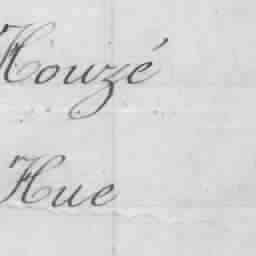 Houzé
Hue